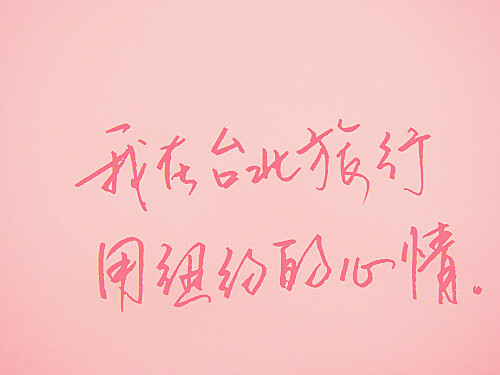 我在台北旅行
用纽约的心情.